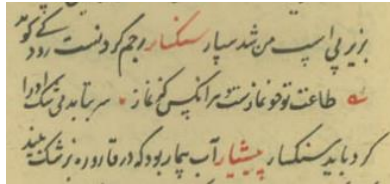 بزیر پی اسپ من شد سپار سنکسار رجم کردنست رود کی کوید
طاعت تو چو نمازست و هر انکس کز نماز سر بتابد بی شک او را
کرد باید سنکسار پیشیار آب بیمار بود که در قاروره بزشک بیند